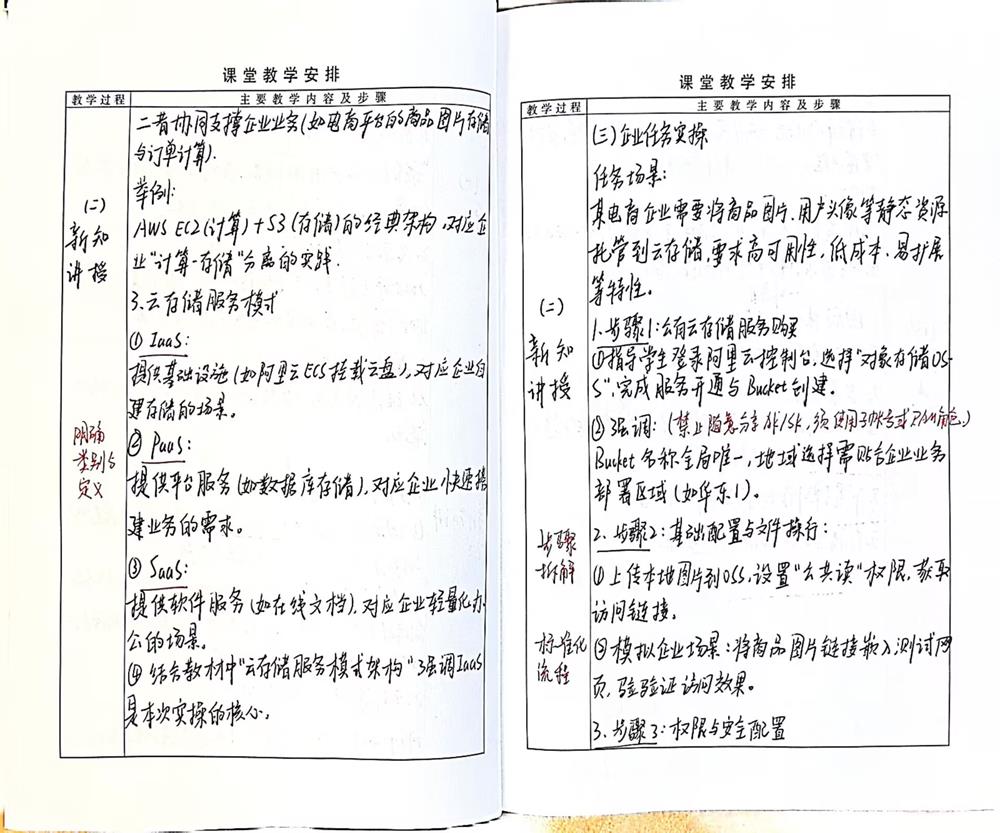 课堂教学安排
教学过程
主要教学内容及步骤
二者协同支撑企业业务(如电商平台的商品图片存储
与订单计算).
举例:
(二)
新知
讲授
AWS EC2(计算)+S3(存储)的经典架构,对应企
业"计算-存储"分离的实践.
3.云存储服务模式
① IaaS:
提供基础设施(如阿里云ECS挂载云盘),对应企业自
建存储的场景。
明确
类别与
定义
② PaaS:
提供平台服务(如数据库存储),对应企业快速搭
建业务的需求。
③ SaaS:
提供软件服务(如在线文档),对应企业轻量化办
公的场景。
④ 结合教材中"云存储服务模式架构"强调IaaS
是本次实操的核心。
课堂教学安排
教学过程
主要教学内容及步骤
(三)企业任务实操
任务场景:
某电商企业需要将商品图片、用户头像等静态资源
托管到云存储,要求高可用性,低成本、易扩展
等特性。
(二)
新知
讲授
1.步骤1:公有云存储服务购买
①指导学生登录阿里云控制台,选择"对象存储OS-
S",完成服务开通与Bucket创建。
②强调:(禁止随意分享AK/SK,须使用子账号或RAM角色.)
Bucket名称全局唯一,地域选择需贴合企业业务
部署区域(如华东1)。
步骤
拆解
2.步骤2:基础配置与文件操行:
①上传本地图片到OSS,设置"公共读"权限,获取
访问链接。
标准化
流程
②模拟企业场景:将商品图片链接嵌入测试网
页,验验证访问效果。
3.步骤3:权限与安全配置